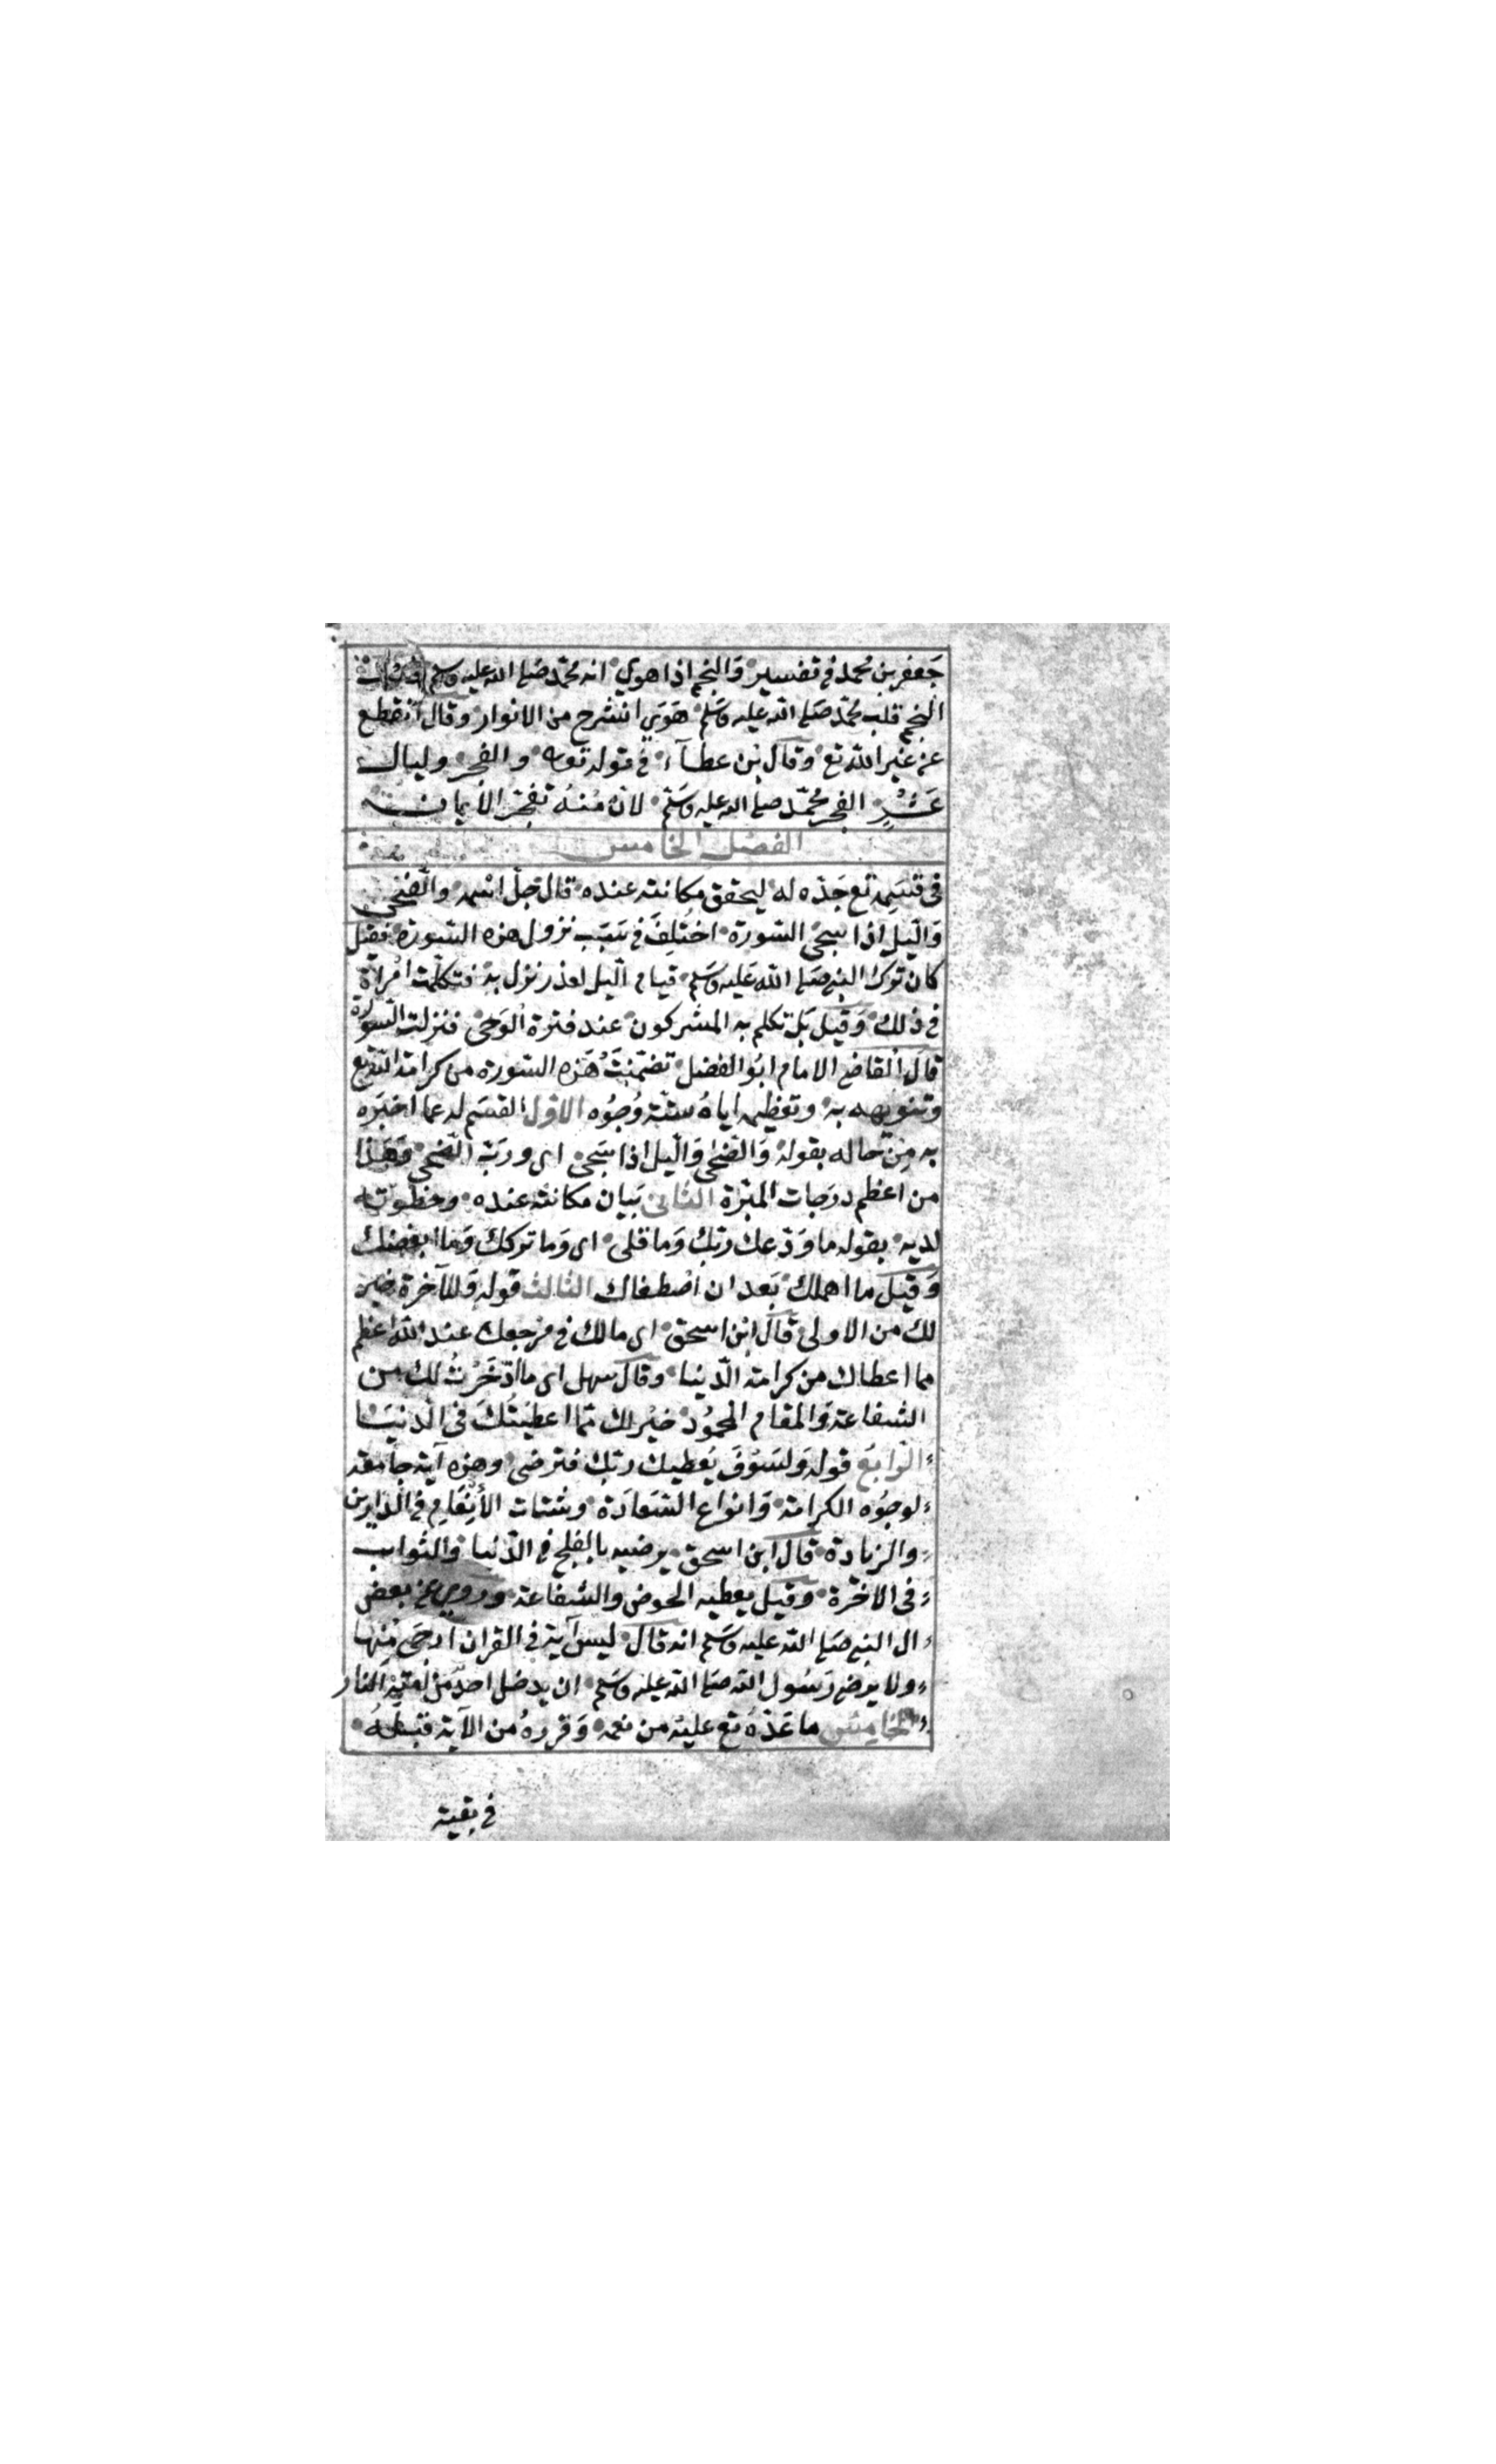 جَعفر بن محمد في تفسير وَالنجم اذا هوي انه محمّد صَلى الله عليه وسلم
النجم قلب محمّد صَلى الله عَليه وسَلم هَوَى انشرح من الانوار وقال انقطع
عن غير الله تع وقال بن عطآء في قوله تعه والفجر وليال
عَشْرٍ الفجر محمّد صلى الله عليه وسَلم لان مُنهُ تفجرّ الايمان
الفصل الخامس
في قسَمِه تع جَدّه له ليحقق مكانته عنده قال جلّ اسمه والضحى
وَالّيل اذا سجى السّورة اختُلِفَ في سَبَب نزول هذه السّورة فقيل
كان ترك النبي صَلى الله عَليه وسَلم قيام الّيل لعذر نزل به فتكلّمت امْرأة
في ذلك وَقيل بَل تكلم به المشركون عند فترة الوَحي فنزلت السّورة
قال القاضي الامام ابُو الفضل تضمّنَتْ هَذه السّورة من كرامة الله تع
وتنويهه به وتعظيمه اياهُ ستّة وُجُوه الاوّل القسَم له عما اخبَره
به مِن حاله بقوله وَالضحىٰ وَالّيل اذا سَجى اى ورَبّ الضّحى وَهَذا
من اعظم درَجات المبَرّة الثانى بَيان مكانته عنده وحظوته
لديه بقوله ما وَدّعك ربّك وَما قلى اى وَما تركك وَمَا ابغضك
وَقيل ما اهملك بَعد ان اصْطفاك الثالث قوله وَللآخرة خير
لك من الاولى قال ابن اسحق اى مالك في مَرجعك عند الله اعظم
مما اعطاك من كرامة الدّنيا وقال سهل اى ما ادّخَرْتُ لك من
الشفاعة وَالمقام المحمُود خيْر لك ممّا اعطيتُكَ في الدنيَا
الرّابَع قوله وَلسَوْفَ يُعطيك ربّك فترضى وهذه آية جامعة
لوجُوه الكرامة وَانواع السّعَادَة وشتات الأنعَامِ في الدّارين
والزيادة قال ابن اسحق يرضيه بالفلج في الدّنيا وَالثواب
في الاخرَة وقيل يعطيه الحوض والشفاعة وروي عن بعض
ال النبي صَلى الله عليه وسَلم انه قال ليس آية في القران ارجَى مِنها
ولا يرضى رَسُول الله صَلى الله عليه وسَلم ان يدخل احد مّن امّته النار
الخامس ما عَدّهُ تع عليْه من نعمه وَقررهُ من الآية قبَلهُ
في بقية